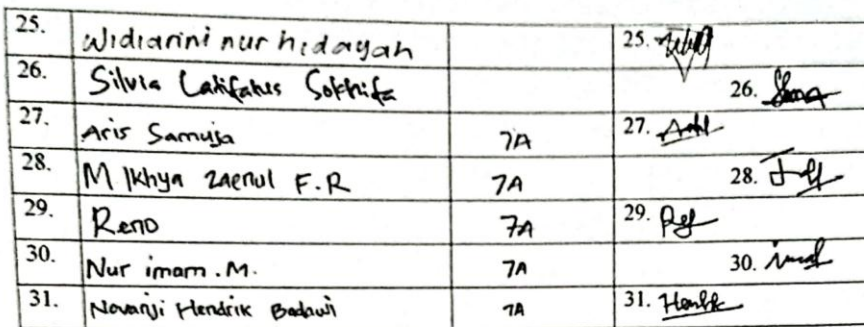 25. Widiarini nur hidayah 25.
26. Silvia Latifatus Sokhifa 26.
27. Aris Samuja 7A 27.
28. M Ikhya Zaenul F.R 7A 28.
29. Reno 7A 29.
30. Nur imam.M. 7A 30.
31. Novanji Hendrik Badawi 7A 31.